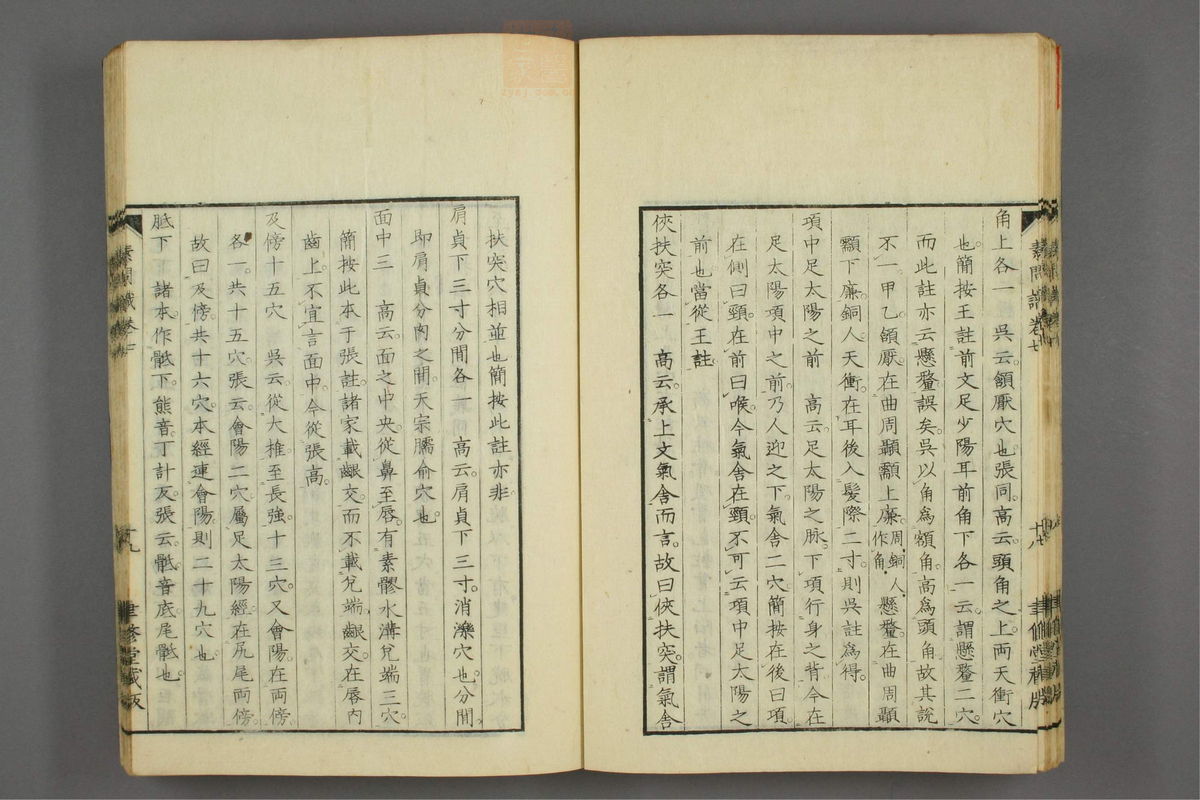 素問識卷七
十八
聿修堂藏版
角上各一　吳云。頷厭穴也。張同。高云。頭角之上。兩天衝穴
也。簡按王註。前文足少陽耳前角下各一云。謂懸釐二穴。
而此註亦云懸釐。誤矣。吳以角為額角。高為頭角。故其說
不一。甲乙。頷厭。在曲周顳顬上廉。周。銅人。作角。懸釐。在曲周顳
顬下廉。銅人。天衝。在耳後入髮際二寸。則吳註為得。
項中足太陽之前　高云。足太陽之脉。下項行身之背。今在
足太陽項中之前。乃人迎之下。氣舍二穴。簡按在後曰項。
在側曰頸。在前曰喉。今氣舍在頸。不可云項中足太陽之
前也。當從王註。
俠扶突各一　高云。承上文氣舍而言。故曰俠扶突。謂氣舍
扶突穴相並也。簡按此註亦非。
肩貞下三寸分間各一　高云。肩貞下三寸。消濼穴也。分間。
即肩貞分肉之間。天宗臑俞穴也。
面中三　高云。面之中央。從鼻至唇。有素髎水溝兌端三穴。
簡按此本于張註。諸家載齦交而不載兌端。齦交在唇内
齒上。不宜言面中。今從張高。
及傍十五穴　吳云。從大椎至長強。十三穴。又會陽在兩傍
各一。共十五穴。張云。會陽二穴。屬足太陽經。在尻尾兩傍。
故曰及傍。共十六穴。本經連會陽。則二十九穴也。
胝下　下諸本。作骶下。熊音。丁計反。張云。骶音底。尾骶也。
素問識卷七
十九
聿修堂藏版